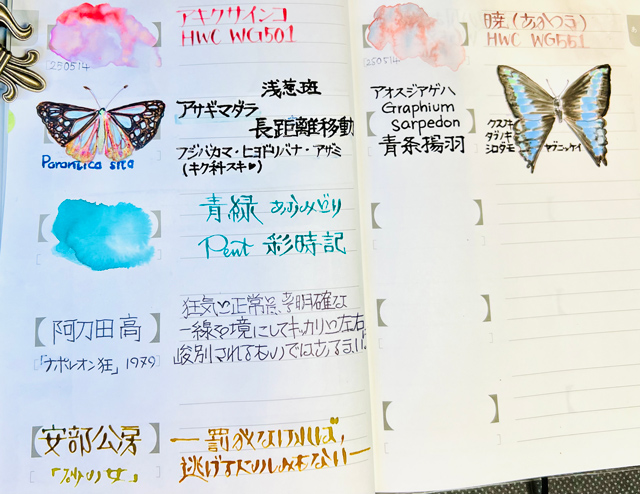 アキクサインコ
HWC WG501
250514
浅葱斑
アサギマダラ
長距離移動
フジバカマ・ヒヨドリバナ・アザミ
(キク科スキ♥)
Parantica sita
青緑 あおみどり
Pent 彩時記
阿刀田高
「ナポレオン狂」1979
狂気と正常とは、明確な
一線を境にしてキッカリと左右に
峻別されるものではあるまい。
安部公房
「砂の女」
― 罰がなければ、
逃げるたのしみもない ―
暁(あかつき)
HWC WG551
250514
アオスジアゲハ
Graphium
sarpedon
青条揚羽
クスノキ
タブノキ
シロダモ
ヤブニッケイ